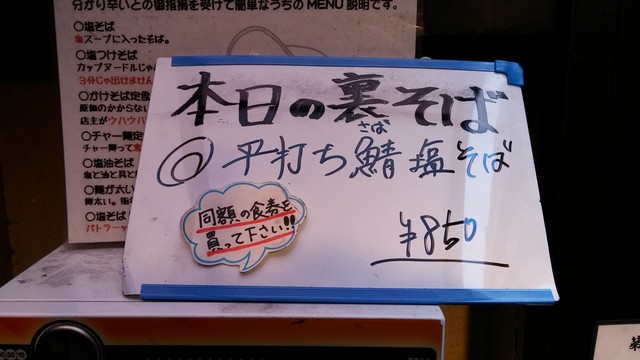 分かり辛いとの御指摘を受けて簡単なうちのMENU説明です。
○塩そば
塩スープに入ったそば。
○塩つけそば
カップヌードルじゃ
3分じゃ出せません
○かけそば定食
原価のかからない
店主がウハウハ
○チャー麺定
チャー麺って
○塩油そば
塩と油と具と
○麺が太い
麺太い。指
○塩そば
バトラー
本日の裏そば
さば
◎平打ち鯖塩そば
同額の食券を
買って下さい!!
¥850